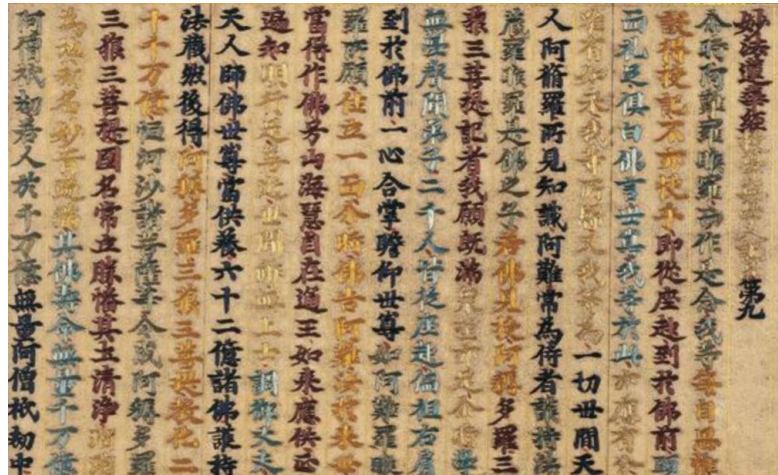 妙法蓮華經第九
尒時阿難羅睺羅而作是念我等每自思惟
設得授記不亦快乎即從座起到於佛前頭
面礼足俱白佛言世尊我等於此亦應有分
唯有如來我等所歸又我等為一切世間天
人阿脩羅所見知識阿難常為侍者護持法
蔵羅睺羅是佛之子若佛見授阿耨多羅三
藐三菩提記者我願既滿衆望亦足尒時學
無學聲聞弟子二千人皆從座起偏袒右肩
到於佛前一心合掌瞻仰世尊如阿難羅睺
羅所願住立一面尒時佛告阿難汝於來世
當得作佛号山海慧自在通王如來應供正
遍知明行足善逝世間解無上士調御丈夫
天人師佛世尊當供養六十二億諸佛護持
法蔵然後得阿耨多羅三藐三菩提教化二
十千万億恒河沙諸菩薩等令成阿耨多羅
三藐三菩提國名常立勝幡其土清淨
為地劫名妙音遍滿其佛壽命無量千万億
阿僧祇劫若人於千万億無量阿僧祇劫中